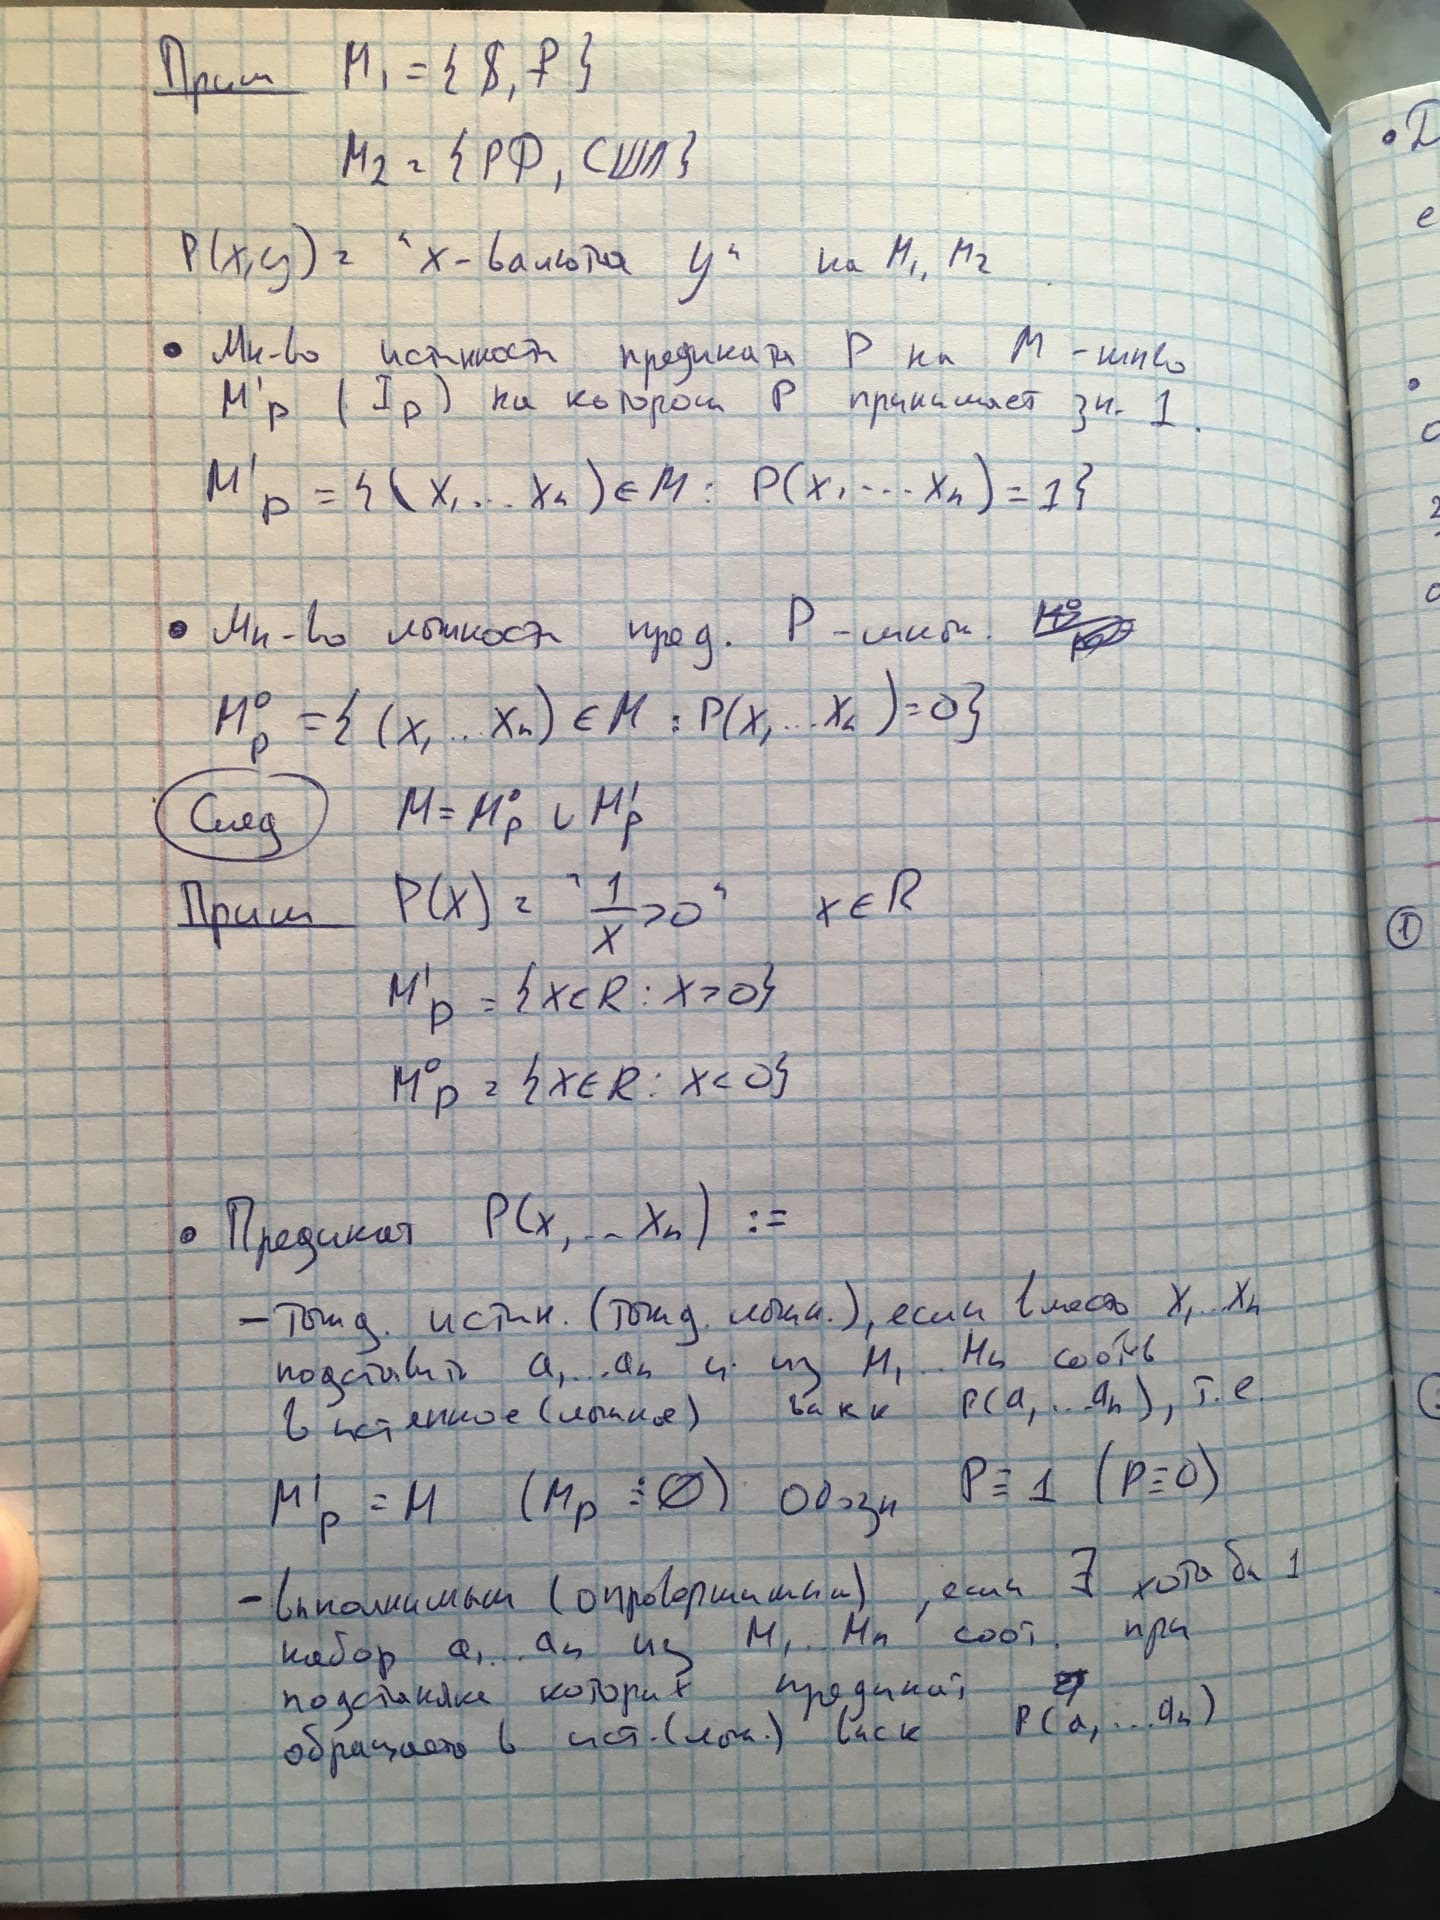 Прим M₁ = { $, ₽ }
M₂ = { РФ, США }
P(x,y) = "x - валюта y" на M₁, M₂
• Мн-во истинности предиката P на M - мн-во
M¹ₚ (Iₚ) на котором P принимает зн. 1.
M¹ₚ = {(x₁...xₙ) ∈ M : P(x₁...xₙ) = 1}
• Мн-во ложности пред. P - мн.
M⁰ₚ = {(x₁...xₙ) ∈ M : P(x₁...xₙ) = 0}
След M = M⁰ₚ ∪ M¹ₚ
Прим P(x) = "1/x > 0" x ∈ R
M¹ₚ = {x ∈ R : x > 0}
M⁰ₚ = {x ∈ R : x < 0}
• Предикат P(x₁...xₙ) :=
- тожд. истин. (тожд. ложн.), если вместо x₁...xₙ
подставить a₁...aₙ из M₁...Mₙ соотв
в истинное (ложное) P(a₁,...aₙ), т.е.
M¹ₚ = M (Mₚ = ∅) Обозн P ≡ 1 (P ≡ 0)
- выполнимым (опровержимым), если ∃ хотя бы 1
набор a₁...aₙ из M₁...Mₙ соот. при
подстановке которых предикат
обращается в ист. (лож.) выск P(a₁...aₙ)
• 
е
•
①